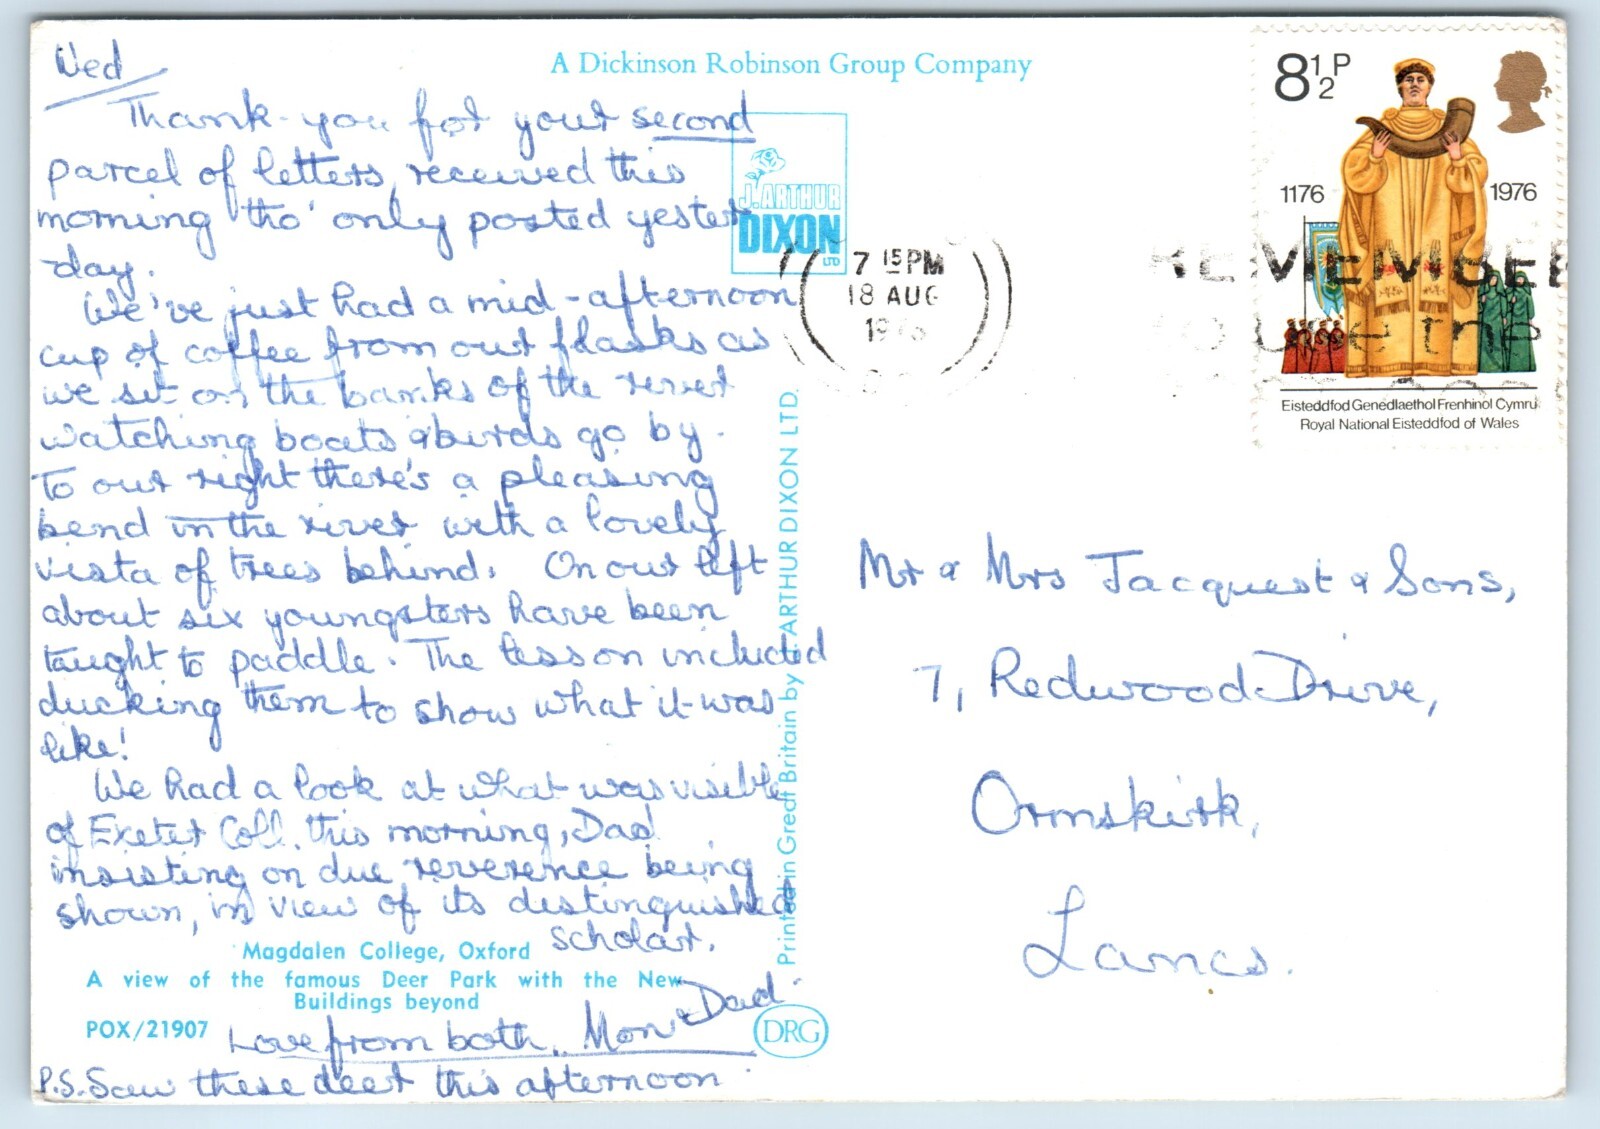 Wed
A Dickinson Robinson Group Company
Thank-you for your second
parcel of letters, received this
morning tho' only posted yester
day.
We've just had a mid-afternoon
cup of coffee from our flasks as
we sit on the banks of the river
watching boats & birds go by.
To our right there's a pleasing
bend in the river with a lovely
vista of trees behind. On our left
about six youngsters have been
taught to paddle. The lesson included
ducking them to show what it was
like!
We had a look at what was visible
of Exeter Coll. this morning, Dad
insisting on due reverence being
shown, in view of its distinguished
scholar.
Magdalen College, Oxford
A view of the famous Deer Park with the New
Buildings beyond
POX/21907
Love from both, Mom & Dad.
P.S. Saw these deer this afternoon.
J. ARTHUR
DIXON
LTD
Printed in Great Britain by ARTHUR DIXON LTD.
DRG
7 15 PM
18 AUG
REMEMBER
8½P
1176
1976
Eisteddfod Genedlaethol Frenhinol Cymru
Royal National Eisteddfod of Wales
Mr & Mrs Jacquest & Sons,
7, Redwood Drive,
Ormskirk,
Lancs.